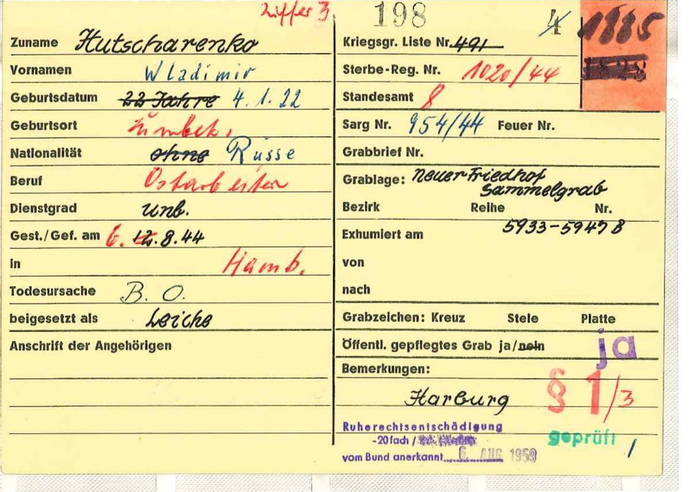 Ziffer 3
198
4
1885
Zuname Hutscharenko
Vornamen Wladimir
Geburtsdatum 22 Jahre 4.1.22
Geburtsort
Nationalität ohne Russe
Beruf Ostarbeiter
Dienstgrad unb.
Gest./Gef. am 6. 12. 8.44
in Hamb.
Todesursache B. O.
beigesetzt als Leiche
Anschrift der Angehörigen
Kriegsgr. Liste Nr. 491
Sterbe-Reg. Nr. 1020/44
Standesamt 8
Sarg Nr. 954/44 Feuer Nr.
Grabbrief Nr.
Grablage: Neuer Friedhof
Sammelgrab
Bezirk Reihe Nr.
5933-5947 8
Exhumiert am
von
nach
Grabzeichen: Kreuz Stele Platte
Öffentl. gepflegtes Grab ja/nein ja
Bemerkungen:
Harburg § 1/3
Ruherechtsentschädigung
-20fach /
geprüft
vom Bund anerkannt 6. AUG. 1959